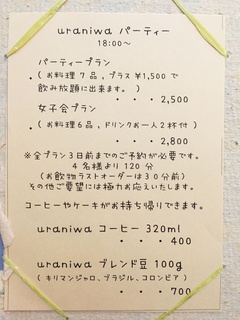 uraniwa パーティー
18:00〜
パーティープラン
(お料理7品,プラス¥1,500で
飲み放題に出来ます。)
・・・2,500
女子会プラン
(お料理6品,ドリンクお一人2杯付)
・・・2,800
※全プラン3日前までのご予約が必要です。
4名様より120分
(お飲物ラストオーダーは30分前)
その他ご要望には極力お応えいたします。
コーヒーやケーキがお持ち帰りできます。
uraniwa コーヒー 320ml
・・・400
uraniwa ブレンド豆 100g
(キリマンジャロ、ブラジル、コロンビア)
・・・700